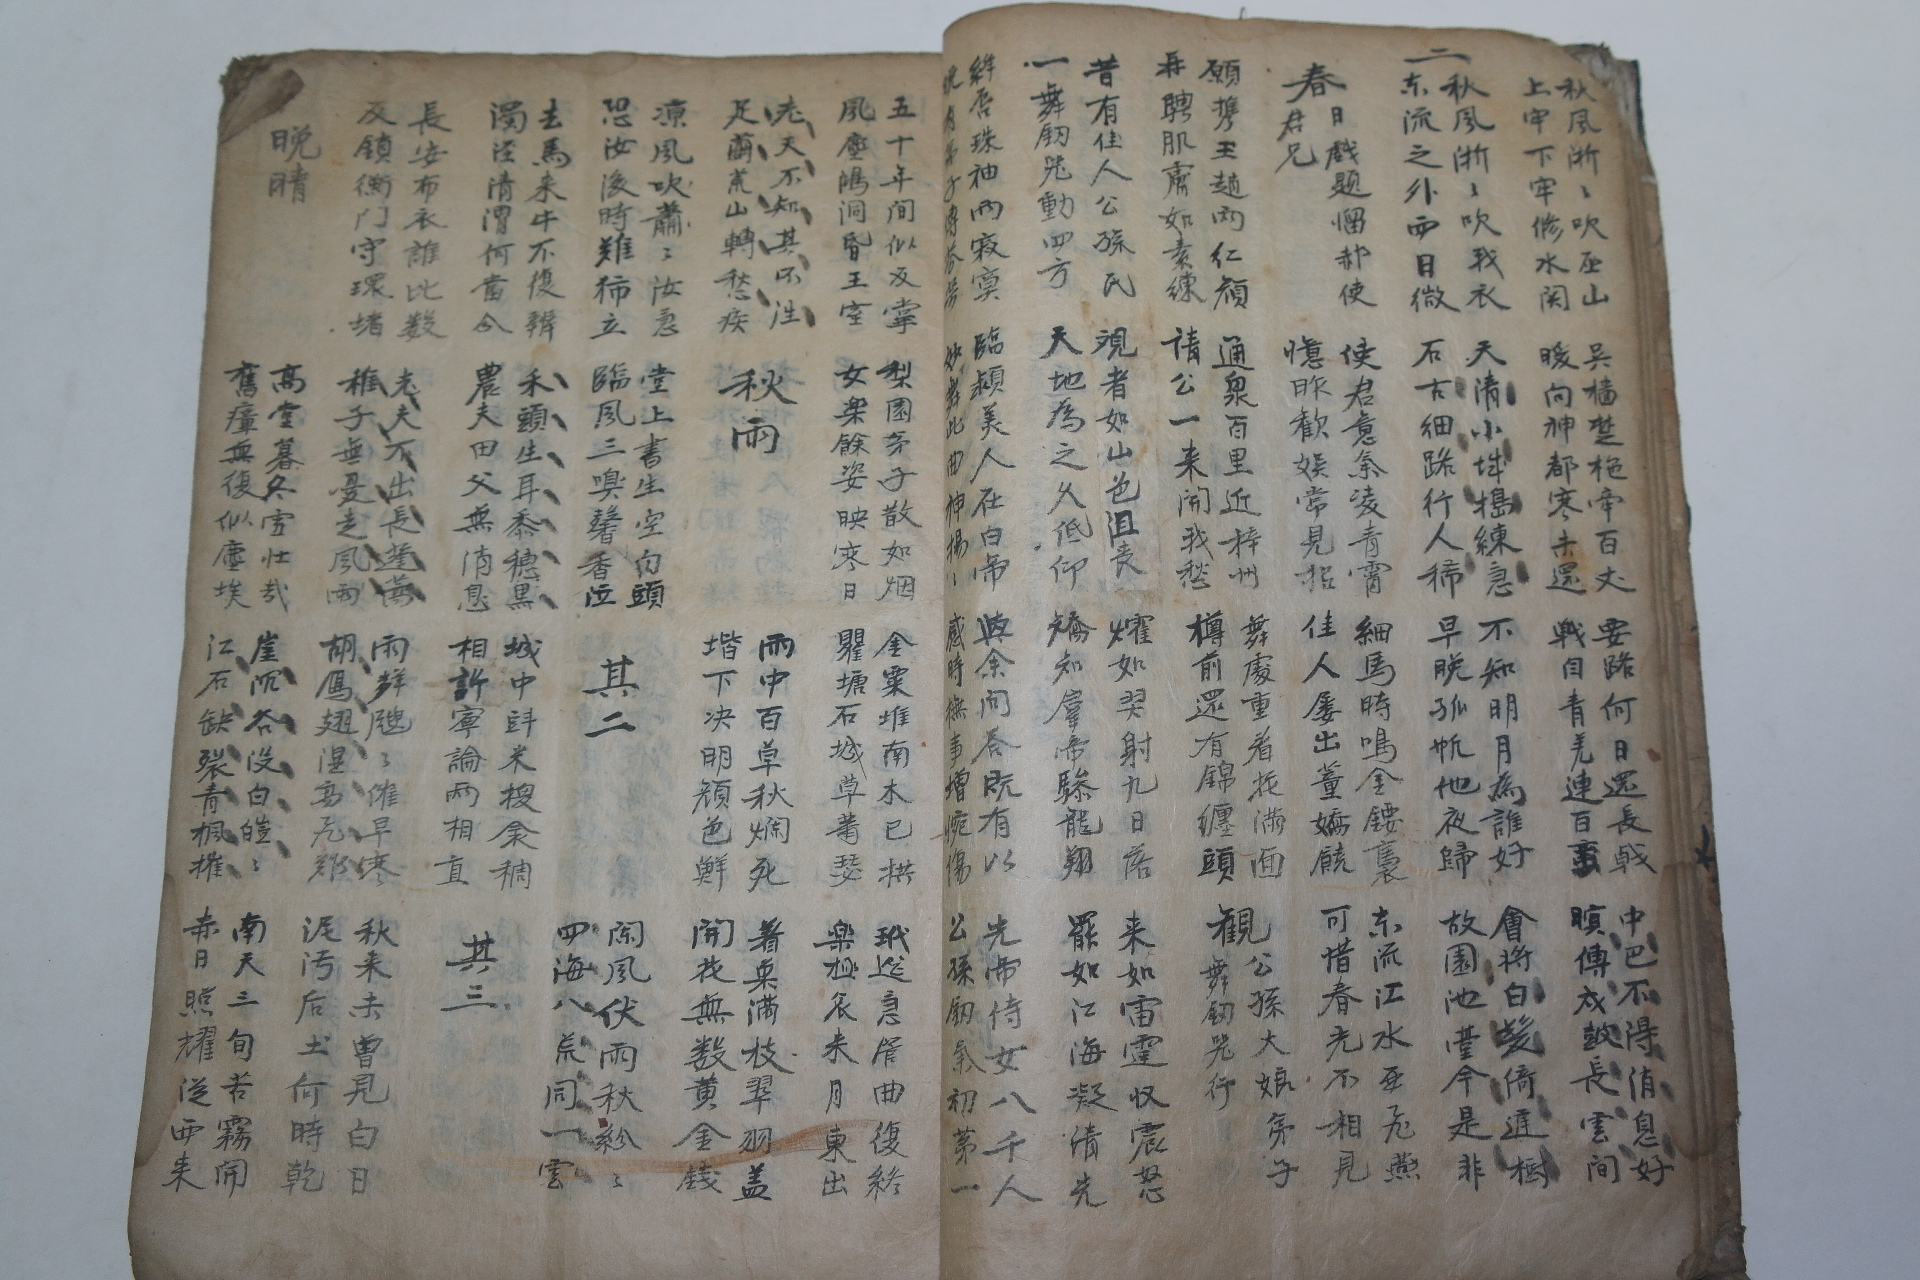 秋风淅〻吹巫山
上牢下牢修水関
吳檣楚柂牽百丈
暖向神都寒未還
要路何日還長戟
戰自青羌連百蠻
中巴不得消息好
暝傳戍皷長雲間
二
秋风淅〻吹我衣
东流之外西日微
天清小城擣練急
石古細路行人稀
不知明月為誰好
早晩孤帆他夜歸
會將白髮倚遅樹
故園池臺今是非
春日戲題惱郝使
君兄
使君意氣凌青霄
憶昨歡娛常見招
細馬時鳴金騕褭
佳人屡出董嬌饒
东流江水西飛燕
可惜春光不相見
願携王趙兩仁顏
再騁肌膚如素練
通泉百里近梓州
請公一来開我愁
舞處重看花滿面
樽前還有錦纏頭
觀公孫大娘弟子
舞釼器行
昔有佳人公孫氏
一舞釼器動四方
覌者如山色沮喪
天地為之久低仰
㸌如羿射九日落
矯如羣帝驂龍翔
来如雷霆收震怒
罷如江海凝清光
絳唇珠袖兩寂寞
晩有弟子傳芬芳
臨潁美人在白帝
妙舞此曲神揚〻
與余问答既有以
感時撫事增惋傷
先帝侍女八千人
公孫釼氣初第一
五十年间似反掌
風塵澒洞昏王室
梨園弟子散如烟
女楽餘姿映寒日
金粟堆南木已拱
瞿塘石城草蕭瑟
玳筵急管曲復終
楽極哀来月東出
老夫不知其所往
足繭荒山轉愁疾
秋雨
雨中百草秋爛死
堦下决明顏色鮮
著葉滿枝翠羽盖
開花無数黄金錢
凉風吹蕭〻汝急
恐汝後時難獨立
堂上書生空白頭
臨風三嗅馨香泣
其二
闌風伏雨秋紛〻
四海八荒同一雲
去馬来牛不復辨
濁涇清渭何當分
禾頭生耳黍穗黒
農夫田父無消息
城中斗米換衾稠
相許寧論兩相直
其三
長安布衣誰比数
反鎖衡門守環堵
老夫不出長蓬蒿
稚子無憂走風雨
雨聲颼〻催早寒
胡鴈翅濕高飛難
秋来未曾見白日
泥汚后土何時乾
晚晴
高堂暮冬雪壮哉
舊瘴無復似塵埃
崖沉谷没白皚〻
江石缺裂青楓摧
南天三旬苦霧開
赤日照耀從西来